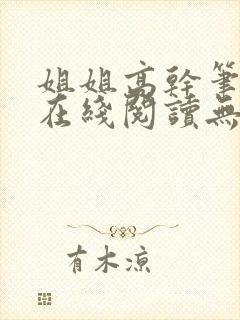 姐姐高幹筆
在綫閱讀無
有木涼